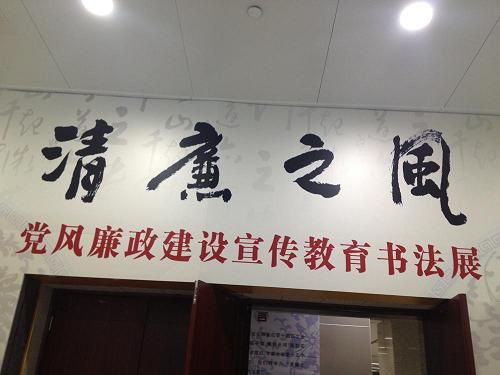 清廉之风
党风廉政建设宣传教育书法展